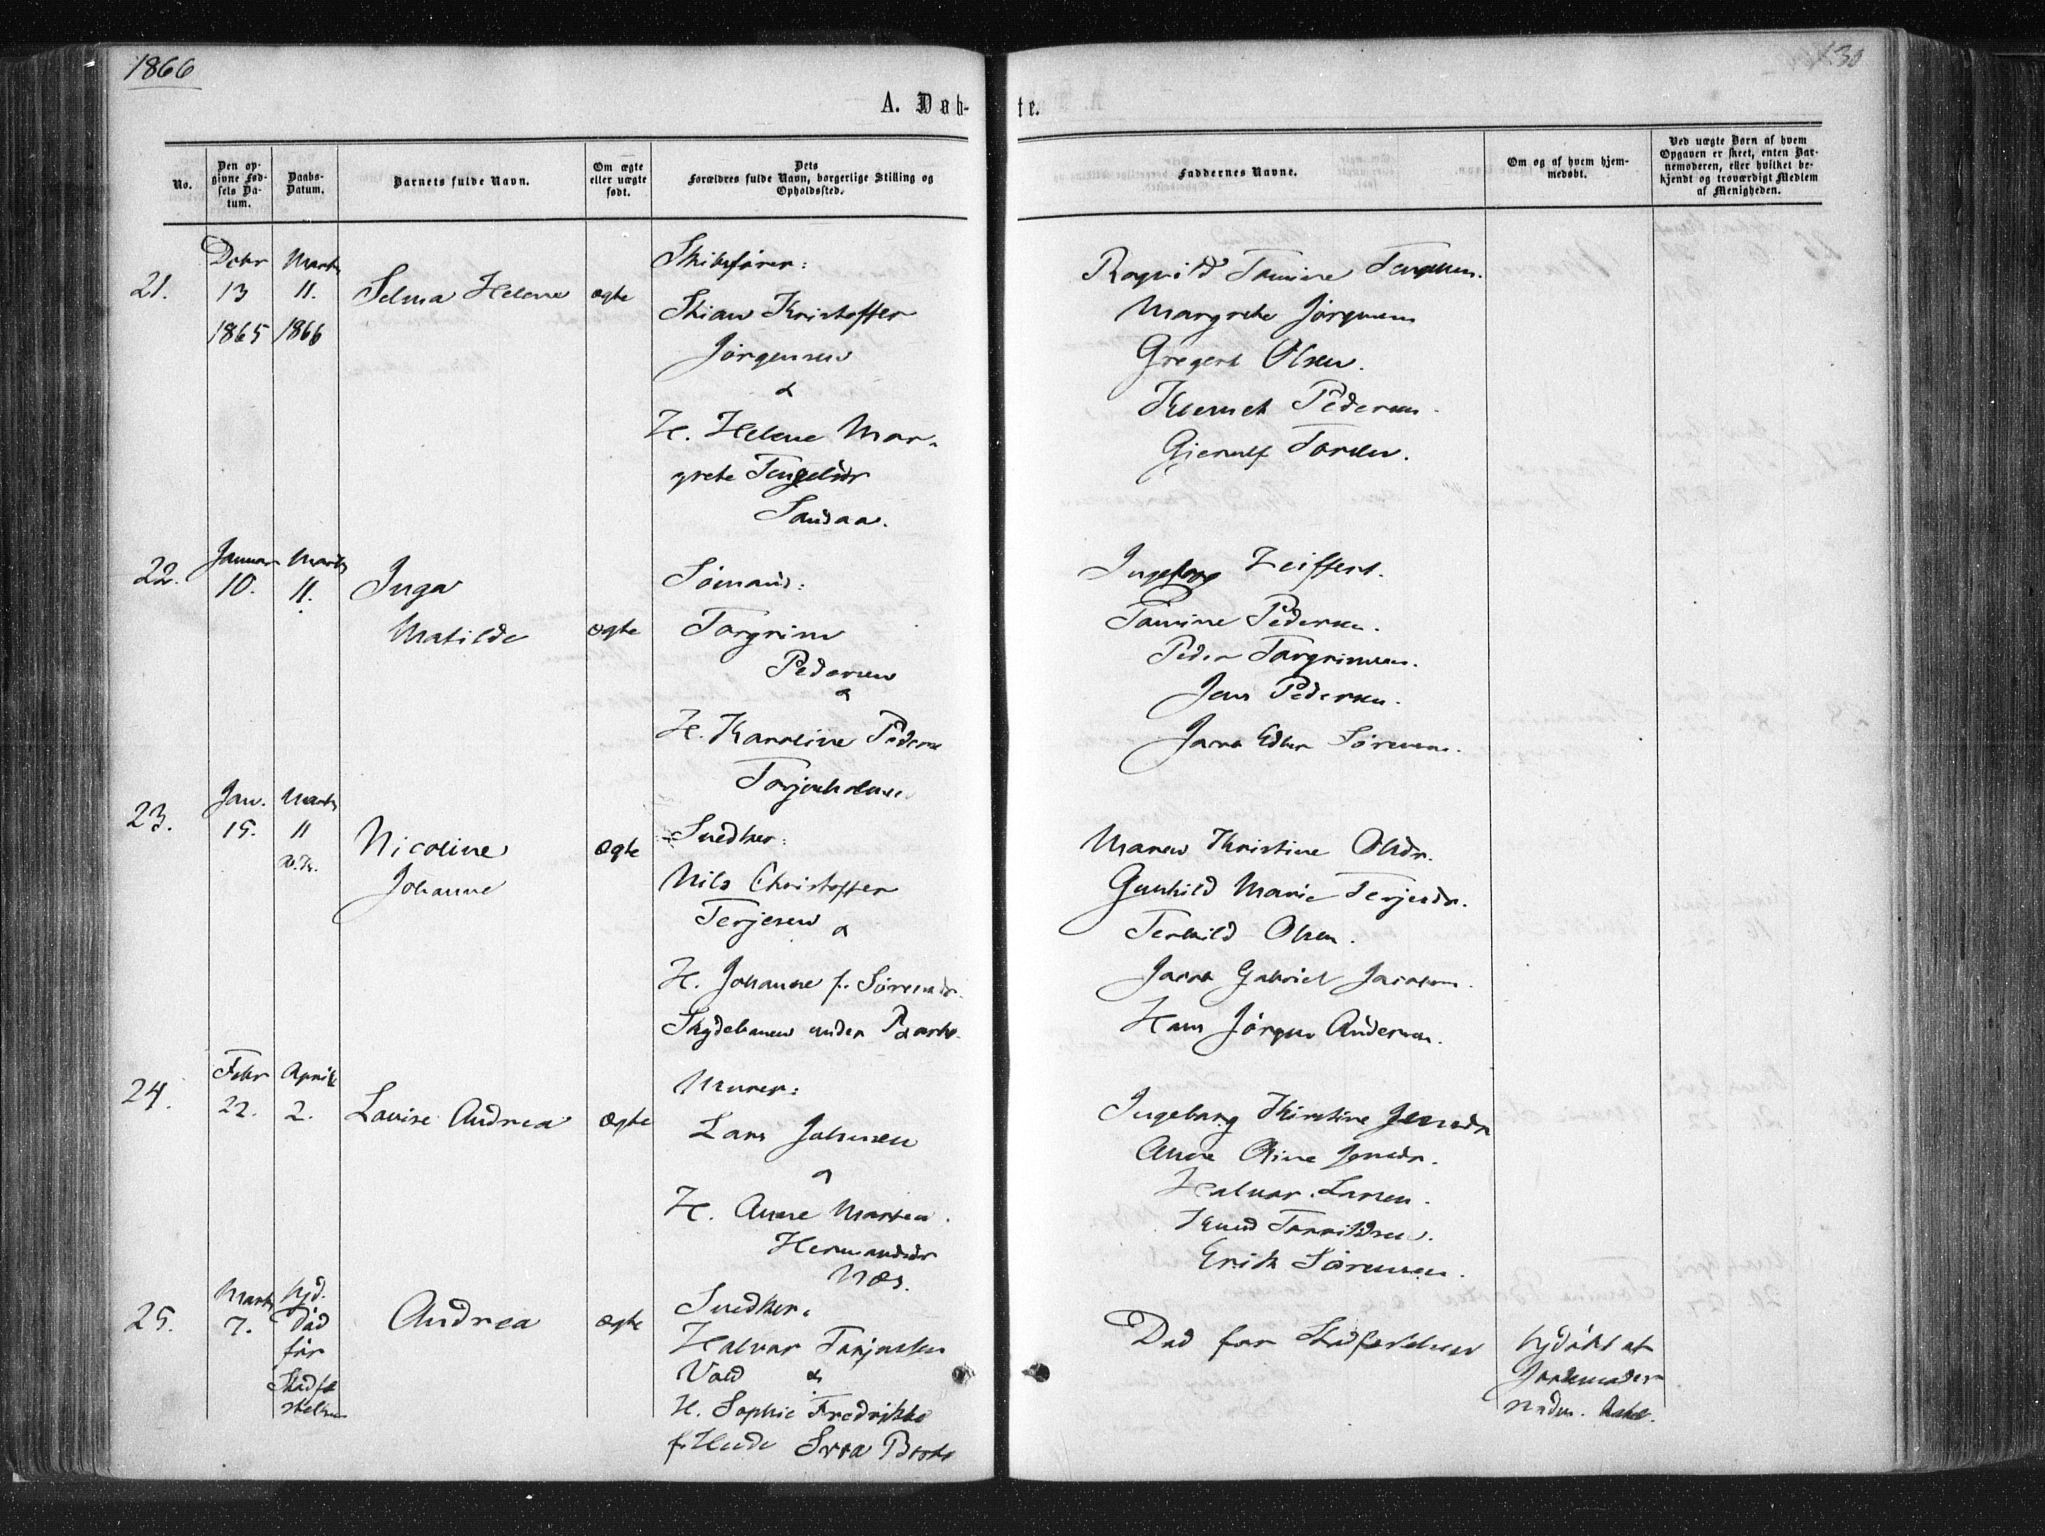 1866
130
A. Døb-
te.
No.
Den op-
givne Fød-
sels Da-
tum.
Daabs-
Datum.
Barnets fulde Navn.
Om ægte
eller uægte
født.
Dets
Forældres fulde Navn, borgerlige Stilling og
Opholdssted.
Faddernes Navne.
Om og af hvem hjem-
medøbt.
Ved uægte Børn af hvem
Opgaven er skeet, enten Bar-
nemoderen, eller hvilket be-
kjendt og troværdigt Medlem
af Menigheden.
21.
Debr
13
1865
Marts
11.
1866
Selma Helene
ægte
Skibsfører:
Kristoffer
Jørgensen
&
H. Helene Mar-
grete Tengelsdr
Sandaa.
Ragnild Tomine
Margrethe Jørgensen
Gregert Olsen.
Pedersen.
22.
Januar
10.
Marts
11.
Inga
Matilde
ægte
Sømand:
Torgrim
Pedersen
&
H. Karoline Peders
Ingeborg Zeiffert.
Tomine Pedersen.
Peder Torgrimsen.
Jens Pedersen.
Sørensen.
23.
Jan.
15.
Marts
11
Nicoline
Johanne
ægte
Snedker:
Nils Christoffer
Terjesen &
H. Johanne f. Sørensdr.
Skydebanen under
Maren Kristine Olsdr.
Gunhild Marie Terjesdr.
Terkild Olsen.
Jacob Gabriel Jacobsen.
Hans Jørgen Andersen.
24.
Febr
22.
April
2.
Lovise Andrea
ægte
Murer:
Lars Johnsen
&
H. Anne Martea
Hermandsdr
Næs.
Ingeborg Kirstine Jensdr
Anne Oline Jensdr.
Halvor Larsen.
Knud
Erik Sørensen.
25.
Marts
7.
hjd.
Død
før
Stadfæ
stelsen
Andrea
ægte
Snedker:
Halvor
Vold &
H. Sophie Fredrikke
f.
Død før Stadfæstelsen
hjdøbt af
Jordemoder